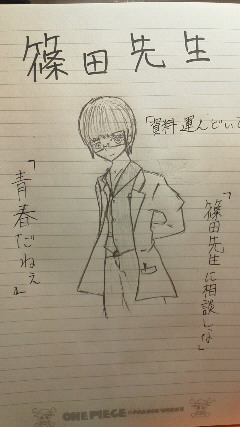 篠田先生
「資料運んどいて
「篠田先生に相談しな」
「青春だねぇ」
ONE PIECE